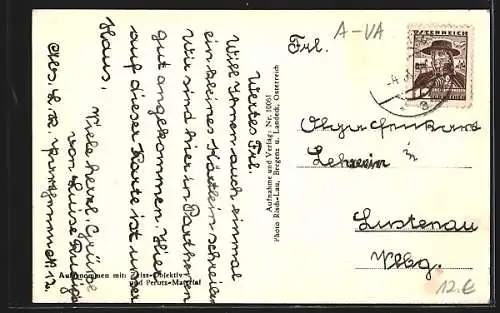 Wertes Frl.
Will Ihnen auch einmal
ein kleines Kärtlein schreiben
Wir sind hier in Parthenen
gut angekommen. Hier
auf dieser Karte ist unser
Haus.
Viele herzl. Grüße
von Luise
Aufgenommen mit Zeiss-Objektiv
und Perutz-Material
Aufnahme und Verlag: Nr. 10061
Photo Risch-Lau, Bregenz u. Landeck, Oesterreich
A-VA
ÖSTERREICH
Frl.
Lehrerin in
Lustenau
Vlbg.
12.€